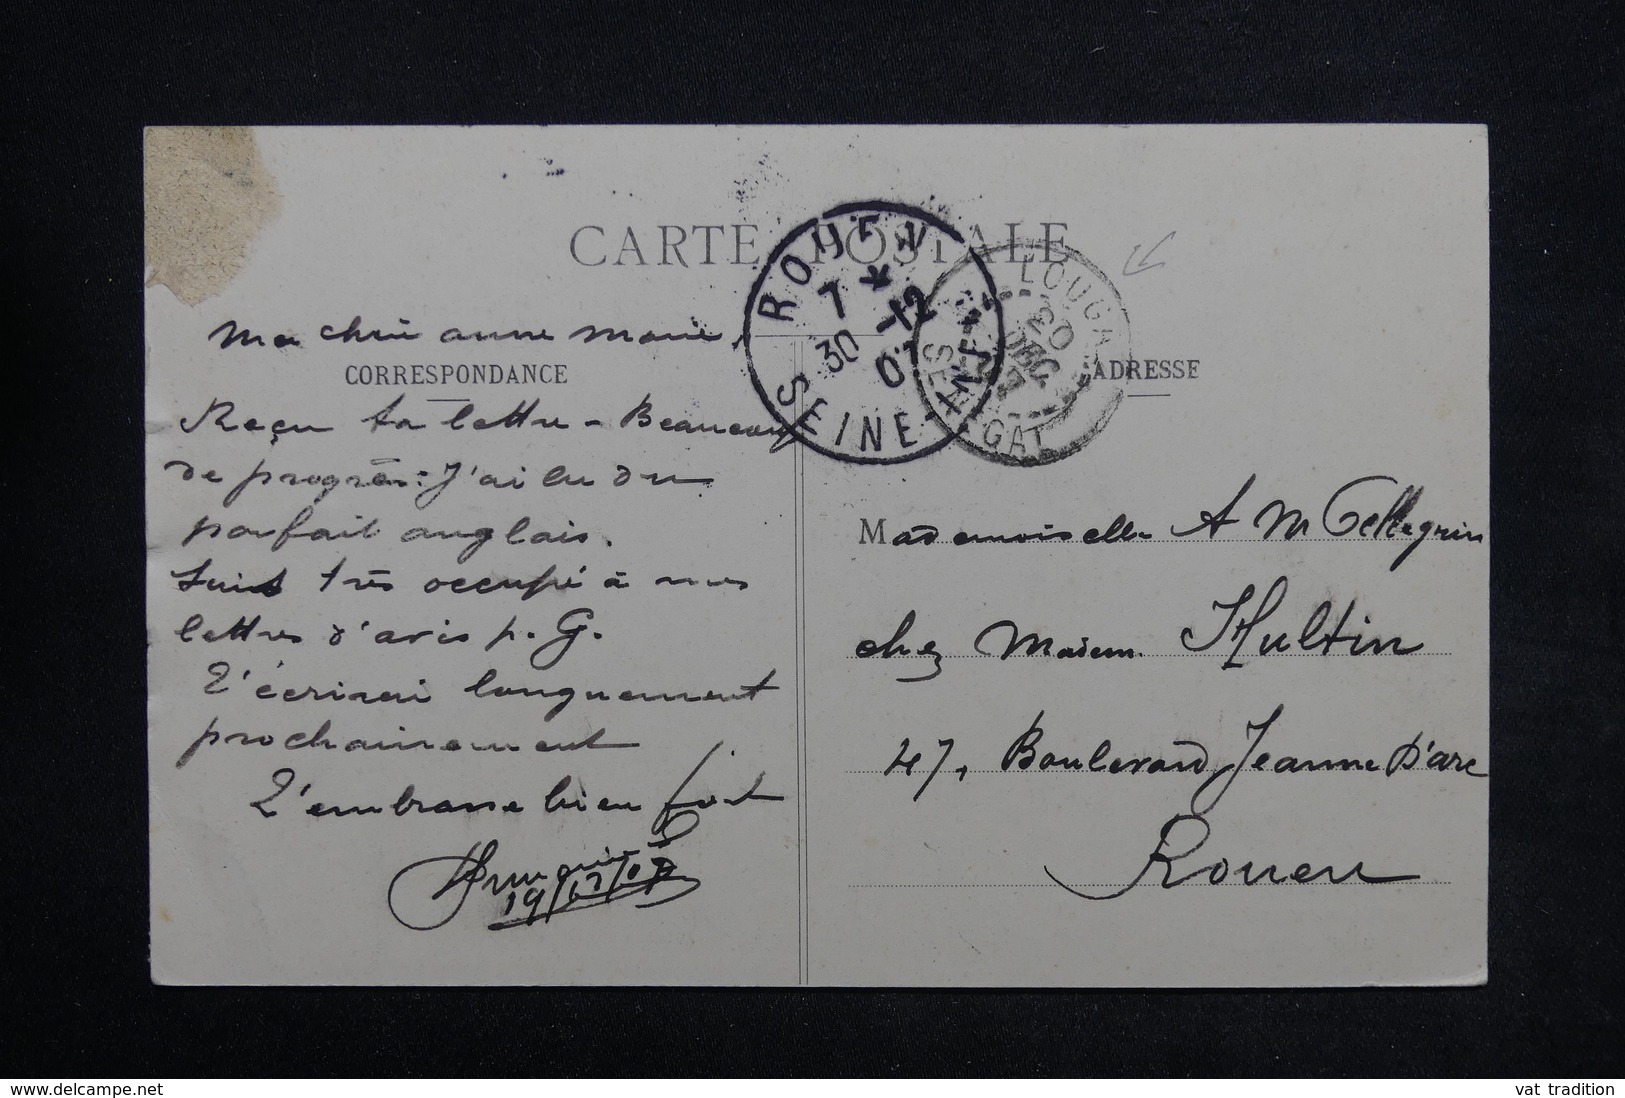 CARTE POSTALE
ROUEN
7 *
30 -12
07
SEINE-INFRE
LOUGA
20
DEC
07
SENEGAL
Ma chère anne Marie,
CORRESPONDANCE
ADRESSE
Reçu ta lettre - Beaucoup
de progrès: J'ai lu du
parfait anglais.
Suis très occupé à mes
lettres d'avis p. G.
T'écrirai longuement
prochainement
T'embrasse bien fort
19/12/07
Mademoiselle A M Pellegrin
chez Madem. Hultin
47, Boulevard Jeanne D'arc
Rouen
delcampe.net
vat tradition